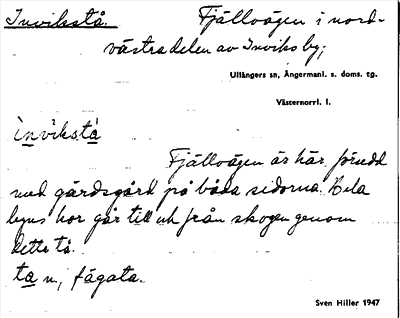 Inviksstå. Fjällvägen i nord-
västra delen av Inviks by;
Ullångers sn, Ångermanl. s. doms. tg.
Västernorrl. l.
ìnvikstá
Fjällvägen är här försedd
med gärdsgård på båda sidorna. Hela
byns kor går till och från skogen genom
detta tå.
ta n., fägata.
Sven Hiller 1947